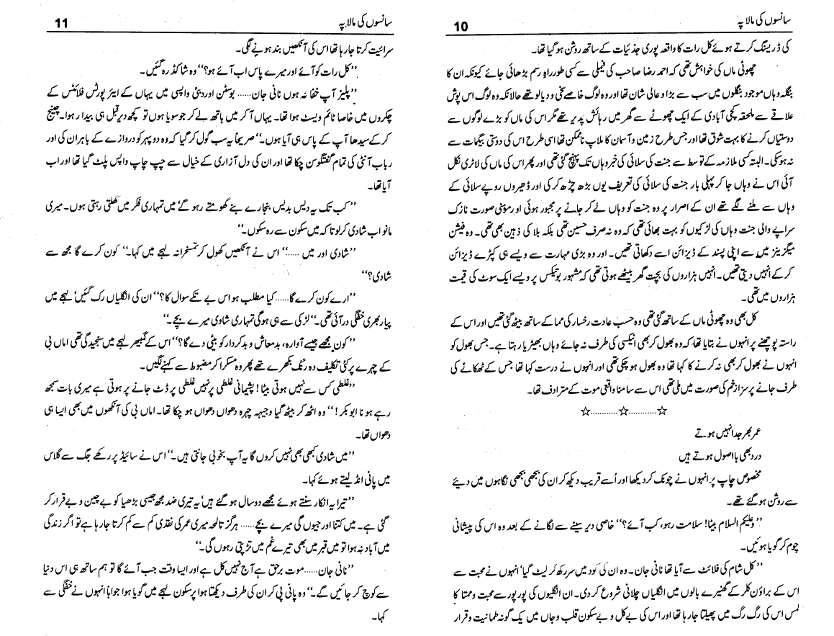 سانسوں کی مالا پہ
10
کی ڈریسنگ کرتے ہوئے کل رات کا واقعہ پوری جذئیات کے ساتھ روشن ہو گیا تھا۔
چھوٹی ماں کی خواہش تھی کہ احمد رضا صاحب کی فیملی سے کسی طور راہ رسم بڑھائی جائے کیونکہ ان کا
بنگلہ وہاں موجود بنگلوں میں سب سے بڑا و عالی شان تھا اور وہ لوگ خاصے غنی و دیالو تھے حالانکہ وہ لوگ اس پوش
علاقے سے ملحقہ کچی آبادی کے ایک چھوٹے سے گھر میں رہائش پذیر تھے مگر اس کی ماں کو بڑے لوگوں سے
دوستیاں کرنے کا بہت شوق تھا اور جس طرح زمین و آسمان کا ملاپ ناممکن تھا اسی طرح اس کی دوستی بیگمات سے
نہ ہو سکی۔ البتہ کسی ملازمہ کے توسط سے جنت کی سلائی کی خبر وہاں تک پہنچ گئی تھی اور پھر اس کی ماں کی لاٹری نکل
آئی اس نے وہاں جا کر پہلی بار جنت کی سلائی کی تعریف یوں بڑھ چڑھ کر کی اور ڈھیروں روپے سلائی کے
وہاں سے ملنے لگے تھے ان کے اصرار پر وہ جنت کو وہاں لے کر جانے پر مجبور ہوئی اور موہنی صورت نازک
سراپے والی جنت وہاں کی لڑکیوں کو بہت بھائی تھی کہ وہ نہ صرف حسین تھی بلکہ بلا کی ذہین بھی تھی۔ وہ فیشن
میگزینز میں سے اپنی پسند کے ڈیزائن اسے دکھاتی تھیں۔ اور وہ بڑی مہارت سے ویسے ہی کپڑے ڈیزائن
کر کے انہیں دیتی تھیں۔ انہیں ہزاروں کی بچت گھر بیٹھے ہوتی تھی کہ مشہور بوتیکس پر ویسے ایک سوٹ کی قیمت
ہزاروں میں تھی۔
کل بھی وہ چھوٹی ماں کے ساتھ گئی تھی وہ حسب عادت رخسار کی مما کے ساتھ بیٹھ گئی تھیں اور اس کے
راستہ پوچھنے پر انہوں نے بتایا تھا کہ وہ بھول کر بھی انیکسی کی طرف نہ جائے وہاں بھیڑیا رہتا ہے۔ جس بھول کو
انہوں نے بھول کر بھی نہ کرنے کا کہا تھا وہ بھول ہو چکی تھی اور انہوں نے درست کہا تھا جس کے ٹھکانے کی
طرف جانے پر سزا زخم کی صورت میں ملی تھی اس سے سامنا واقعی موت کے مترادف تھا۔
☆............☆............☆
عمر بھر جدا نہیں ہوتے
درد بھی بااصول ہوتے ہیں
مخصوص چاپ پر انہوں نے چونک کر دیکھا اور اُسے قریب دیکھ کر ان کی بجھی بجھی نگاہوں میں دیئے
سے روشن ہو گئے تھے۔
”وعلیکم السلام بیٹا! سلامت رہو، کب آئے؟“ خاصی دیر سینے سے لگانے کے بعد وہ اس کی پیشانی
چوم کر گویا ہوئیں۔
”کل شام کی فلائٹ سے آیا تھا نانی جان۔ وہ ان کی گود میں سر رکھ کر لیٹ گیا‘ انہوں نے محبت سے
اس کے براؤن کلر کے گھنیرے بالوں میں انگلیاں چلانی شروع کر دی۔ ان انگلیوں کی پور پور سے محبت و ممتا کا
لمس اس کی رگ رگ میں پھیلتا جا رہا تھا اور اس کی بے کل و بے سکون قلب و جاں میں یک گونہ طمانیت و قرار
سانسوں کی مالا پہ
11
سرائیت کرتا جا رہا تھا اس کی آنکھیں بند ہونے لگی۔
”کل رات کو آئے اور میرے پاس اب آئے ہو؟“ وہ شاکڈ رہ گئیں۔
”پلیز آپ خفا نہ ہوں نانی جان...... بوسٹن اور دبئی واپسی میں یہاں کے ایئر پورٹس فلائٹس کے
چکروں میں خاصا ٹائم ویسٹ ہوا تھا۔ یہاں آ کر میں باتھ لے کر جو سویا ہوں تو کچھ دیر قبل ہی بیدار ہوا۔ چینج
کر کے سیدھا آپ کے پاس ہی آیا ہوں۔“ صریحاً یہ سب گول کر گیا‘ کہ وہ دوپہر کو دروازے کے باہر ان کی اور
رباب آنٹی کی تمام گفتگو سن چکا تھا اور ان کی دل آزاری کے خیال سے چپ چاپ واپس پلٹ گیا تھا اور اب
آیا تھا۔
”کب تک یہ دیس بدیس بنجارے بنے گھومتے رہو گے‘ میں تمہاری فکر میں گھلتی رہتی ہوں۔ میری
مانو اب شادی کر لو تا کہ میں سکون سے رہ سکوں۔“
”شادی اور میں......“ اس نے آنکھیں کھول کر تمسخرانہ لہجے میں کہا۔ ”کون کرے گا مجھ سے
شادی؟“
”ارے کون کرے گا...... کیا مطلب ہوا اس بے تکے سوال کا؟“ ان کی انگلیاں رک گئیں‘ لہجے میں
پیار بھری خفگی در آئی تھی۔ ”لڑکی سے ہی ہو گی تمہاری شادی میرے بچے۔“
”کون مجھے جیسے آوارہ، بدمعاش و بدکردار کو بیٹی دے گا؟“ اس کے گمبھیر لہجے میں سنجیدگی تھی اماں بی
کے چہرے پر کئی تکلیف دہ رنگ بکھرے تھے پھر وہ مسکرا کر مضبوط سے کہنے لگیں۔
”غلطی کس سے نہیں ہوتی بیٹا! پشیمانی غلطی پر نہیں غلطی پر ڈٹ جانے پر ہوتی ہے میری بات سمجھ
رہے ہو نا ابوبکر!“ وہ اٹھ کر بیٹھ گیا وجیہہ چہرہ دھواں دھواں ہو چکا تھا۔ اماں بی کی آنکھوں میں بھی ایسا ہی
دھواں تھا۔
”میں شادی کبھی بھی نہیں کروں گا یہ آپ بخوبی جانتی ہیں۔“ اس نے سائیڈ پر رکھے جگ سے گلاس
میں پانی انڈیلتے ہوئے کہا۔
”تیرا یہ انکار سنتے ہوئے مجھے دو سال ہو گئے ہیں‘ یہ تیری ضد مجھ جیسی بڑھیا کو بے چین و بے قرار کر
گئی ہے۔ میں کتنا اور جیوں گی میرے بچے...... ہر گزرتا لمحہ میری عمر کی نقدی کم سے کم کرتا جا رہا ہے تو اگر زندگی
میں آباد نہ ہوا تو میں قبر میں بھی تیرے غم میں تڑپتی رہوں گی۔“
”نانی جان...... موت برحق ہے آج نہیں کل ہے اور ایسا وقت جب آئے گا تو ہم ساتھ ہی اس دنیا
سے کوچ کر جائیں گے۔“ وہ پانی پی کر ان کی طرف دیکھتا ہوا پرسکون لہجے میں گویا ہوا جواباً انہوں نے خفگی سے
کہا۔